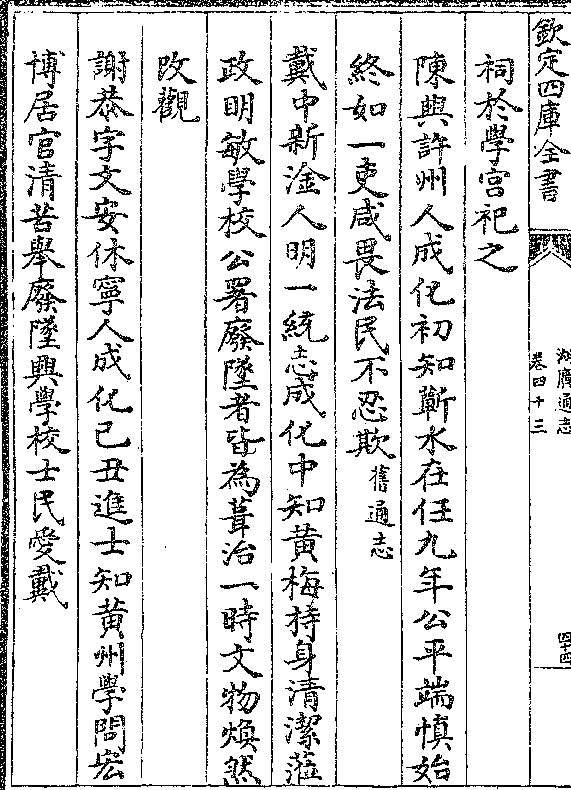 欽定四庫全書
湖廣通志
卷四十三
四十四
祠於學宮祀之
陳興許州人成化初知蘄水在任九年公平端慎始
終如一吏咸畏法民不忍欺舊通志
戴中新淦人明一統志成化中知黃梅持身清潔蒞
政明敏學校公署廢墜者皆為葺治一時文物煥然
改觀
謝恭字文安休寧人成化己丑進士知黃州學問宏
博居官清苦舉廢墜興學校士民愛戴